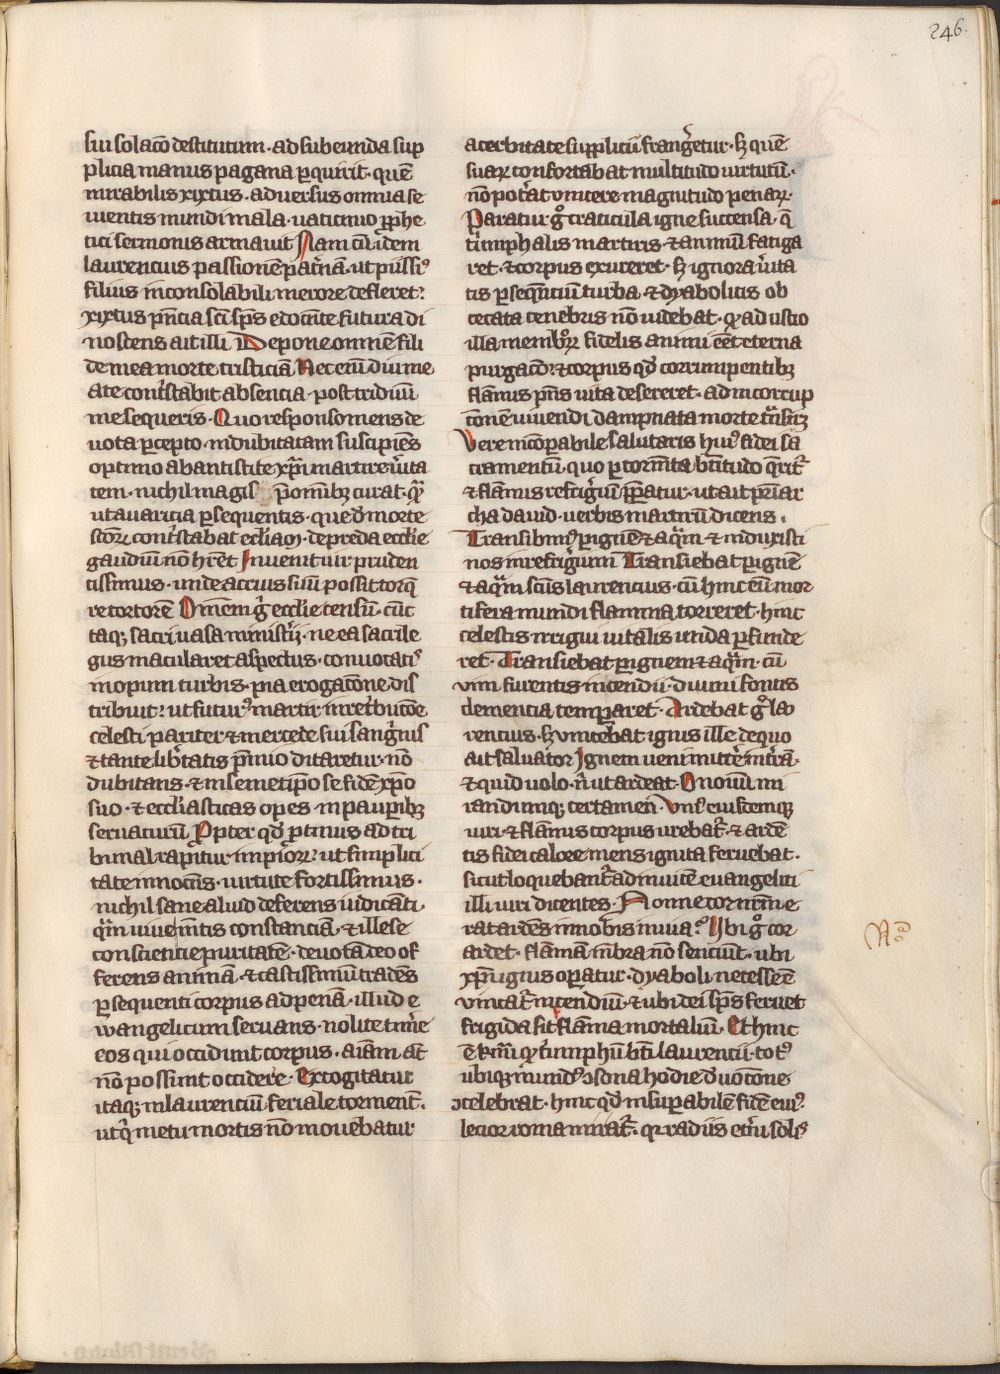 246.
sui solacō destitutum · ad subeunda sup
plicia manus pagana ꝑquirit · quē
mirabilis xixtus · adversus omnia se
uientis mundi mala · vaticinio ꝓphe
tici sermonis armauit Nam cū idem
laurencius passionē pat̾nā · ut piissiꝰ
filius inconsolabili merore defleret :
xixtus p̄ncia sc̄i sp̄s edocente futura di
noscens ait illi Depone omnē fili
de mea morte tristiciā Nec enī diu me
ate cont̾stabit absencia · post triduū
me sequeris · Quo responso mens de
uota ꝑcepto · indubitatam suscipiēs
optimo ab antistite xp̄ri martire v̾ita
tem · nichil magis p̄ omībꝫ curat · qͣꝫ
ut auaricia ꝑsequentis · que de morte
sc̄oꝝ cont̾stabat eccl̄iaꝫ · de preda ecclie
gaudiū nō hr̄et Inuenit uir pruden
tissimus · unde accius suū possit torq̄
re tortorē Omnem g̾ ecclie censū · cūc
taqꝫ sacri uasa minist̾ii · ne ea sacrile
gus macularet aspectus · conuocatis
inopum turbis · pia erogacōne dis
tribuit : ut futurꝰ martir in ret̾bucōe
celesti pariter ⁊ mercede sui sang̾nis
⁊ tante lib̾tatis p̄mio ditaretur · nō
dubitans · ⁊ in semetip̄o se fidē xp̄o
suo · ⁊ eccl̾iasticas opes in pauꝑibꝫ
seruaturū Ꝓpter qd̾ ꝓtinus ad tri
bunal rapitur impioꝝ : ut simplici
tate innocēs · uirtute fortissimus ·
nichil sane aliud deferens iudicanti ·
qͣm uiuentis constanciā · ⁊ illese
consciencie puritatē · deuotā deo of
ferens animā · ⁊ castissimū tradēs
ꝑsequenti corpus ad penā · illud e
wangelicum seruans · nolite tim̾e
eos qui occidunt corpus · aīam āt
nō possunt occidere · Excogitatur
itaqꝫ in laurenciū feriale torment̄ ·
ut qͥ metu mortis nō mouebatur
acerbitate supplicii frang̾etur · sꝫ quē
suaꝝ confortabat multitudo uirtutū ·
nō pot̾at vincere magnitudo penaꝝ ·
Paratur g̊ craticula igne succensa · q̄
t̾umphalis martiris · ⁊ animū fatiga
ret · ⁊ corpus exureret · sꝫ ignora v̾ita
tis ꝑsequēciū turba · ⁊ dyabolicis ob
cecata tenebris nō uidebat · qꝫ ad ustio
illa membroꝝ fidelis animi eēt eterna
purgacō · ⁊ corpus qd̾ corrumpentibꝫ
flāmis p̄ns uita desereret · ad incorrup
cōnē uiuendi dampnata morte t̾nsiret
Vere incōparabile salutaris huiꝰ fidei sa
cramentū · quo ꝑ torm̄ta bt̄itudo q̾rit̾
⁊ flāmis refrig̾iū p̄paratur · ut ait pat̾ar
cha dauid · uerbis martirū dicens ·
Transibimꝰ ꝑ ignē ⁊ aqͣm · ⁊ induxisti
nos in refrig̾ium Transiebat ꝑ ignē
⁊ aqͣm sc̄us laurencius · cū hinc eū mor
tifera mundi flamma torreret · hinc
celestis irrigui uitalis unda ꝑfunde
ret · Transiebat ꝑ ignem ⁊ aqͣm · cū
vim furentis incendii · diuini fontis
clemencia temꝑaret · Ardebat g̊ lau
rencius · sꝫ vincebat ignis ille de quo
ait saluator Ignem ueni mitt̾e in t̾ram ·
⁊ quid uolo · n̄ ut ardeat · O nouū mi
randumqꝫ certamen · Vniꝰ eiusdemqꝫ
uiri · ⁊ flāmis corpus urebat̾ · ⁊ ardē
tis fidei calore mens ignita feruebat ·
sicut loquebant̾ ad inuicē euangelici
illi uiri dicentes · Nonne cor nr̄m e
rat ardēs in nobis in uia ? Ubi g̊ cor
ardet · flāmā mēbra nō senciūt · ubi
xp̄i ignis oꝑatur · dyaboli necesse ē
vincat̾ incendiū · ⁊ ubi dei sp̄s feruet
frigida fit flāma mortaliū · Et hinc
ē kmī qꝫ t̾umphū bt̄i laurencii · totꝰ
ubiqꝫ mundꝰ ꝯsona hodie deuocōne
ꝯcelebrat · hinc qd̾ insuꝑabilē fidē eiuꝰ
lecior roma mirat̾ · qꝫ radiis et̾ni solis